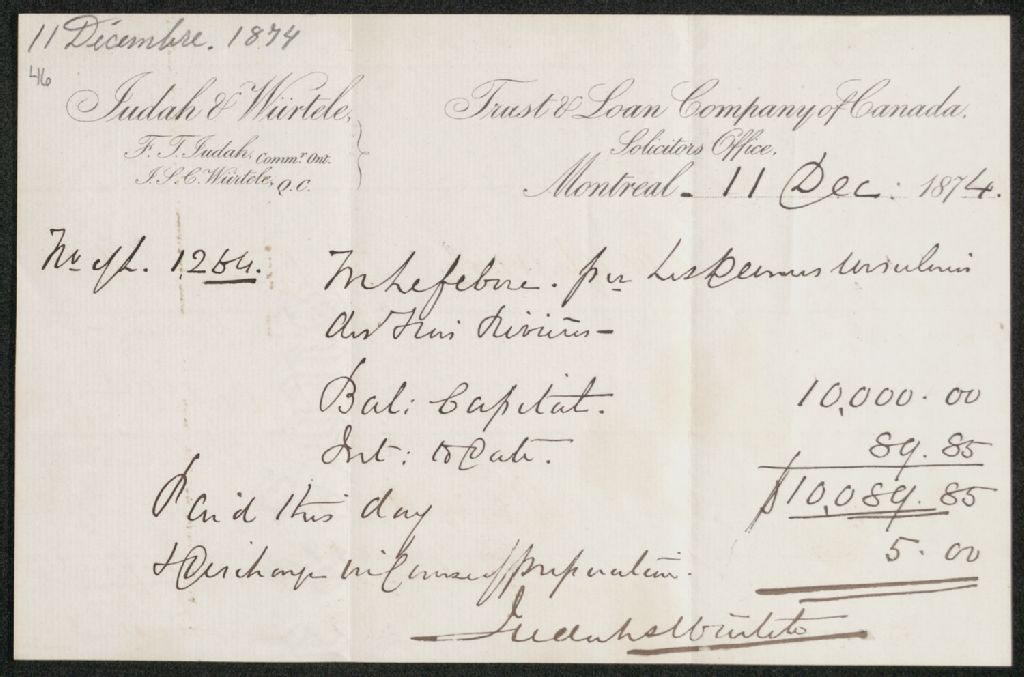 11 Décembre. 1874
46
Judah & Würtele,
F. T. Judah, Commr. Ont.
J. S. C. Würtele, Q.C.
Trust & Loan Company of Canada.
Solicitors Office,
Montreal - 11 Dec: 1874.
No. of L. 1264.
M Lefebvre. per Les Dames Ursulines
des Trois Rivières -
Bal: Capital. 10,000.00
Int: to Date. 89.85
$10,089.85
Paid this day
& Discharge in Course of preparation. 5.00
Judah & Würtele